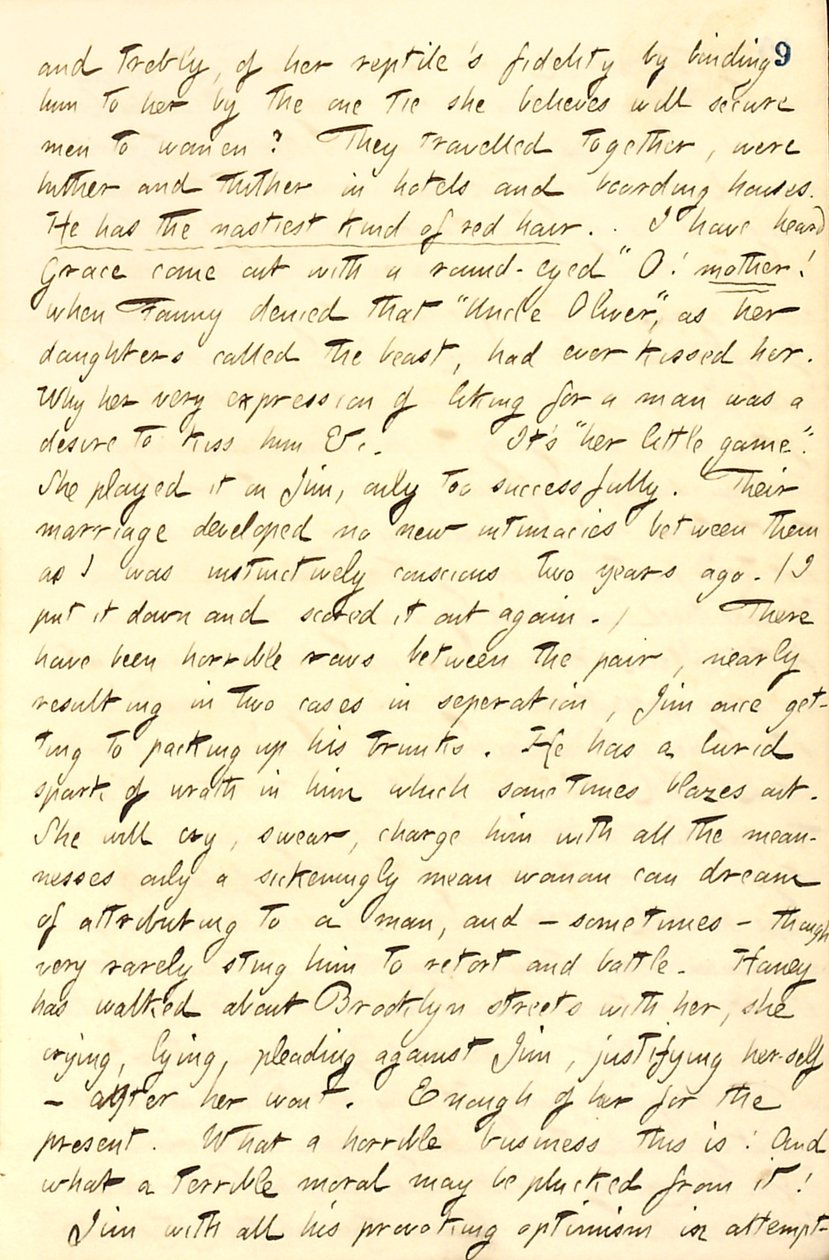 9
and trebly, of her reptile's fidelity by binding
him to her by the one tie she believes will secure
men to women? They travelled together, were
hither and thither in hotels and boarding houses.
He has the nastiest kind of red hair. . I have heard
Grace come out with a round-eyed "O! mother!
when Fanny denied that "Uncle Oliver", as her
daughters called the beast, had ever kissed her.
Why her very expression of liking for a man was a
desire to kiss him &c. It's "her little game".
She played it on Jim, only too successfully. Their
marriage developed no new intimacies between them
as I was instinctively conscious two years ago. (I
put it down and scored it out again.) There
have been horrible rows between the pair, nearly
resulting in two cases in seperation, Jim once get-
ting to packing up his trunks. He has a lurid
spark of wrath in him which sometimes blazes out.
She will cry, swear, charge him with all the mean-
nesses only a sickeningly mean woman can dream
of attributing to a man, and - sometimes - though
very rarely sting him to retort and battle. Haney
has walked about Brooklyn streets with her, she
crying, lying, pleading against Jim, justifying her-self
- after her wont. Enough of her for the
present. What a horrible business this is! And
what a terrible moral may be plucked from it!
Jim with all his provoking optimism is attempt-